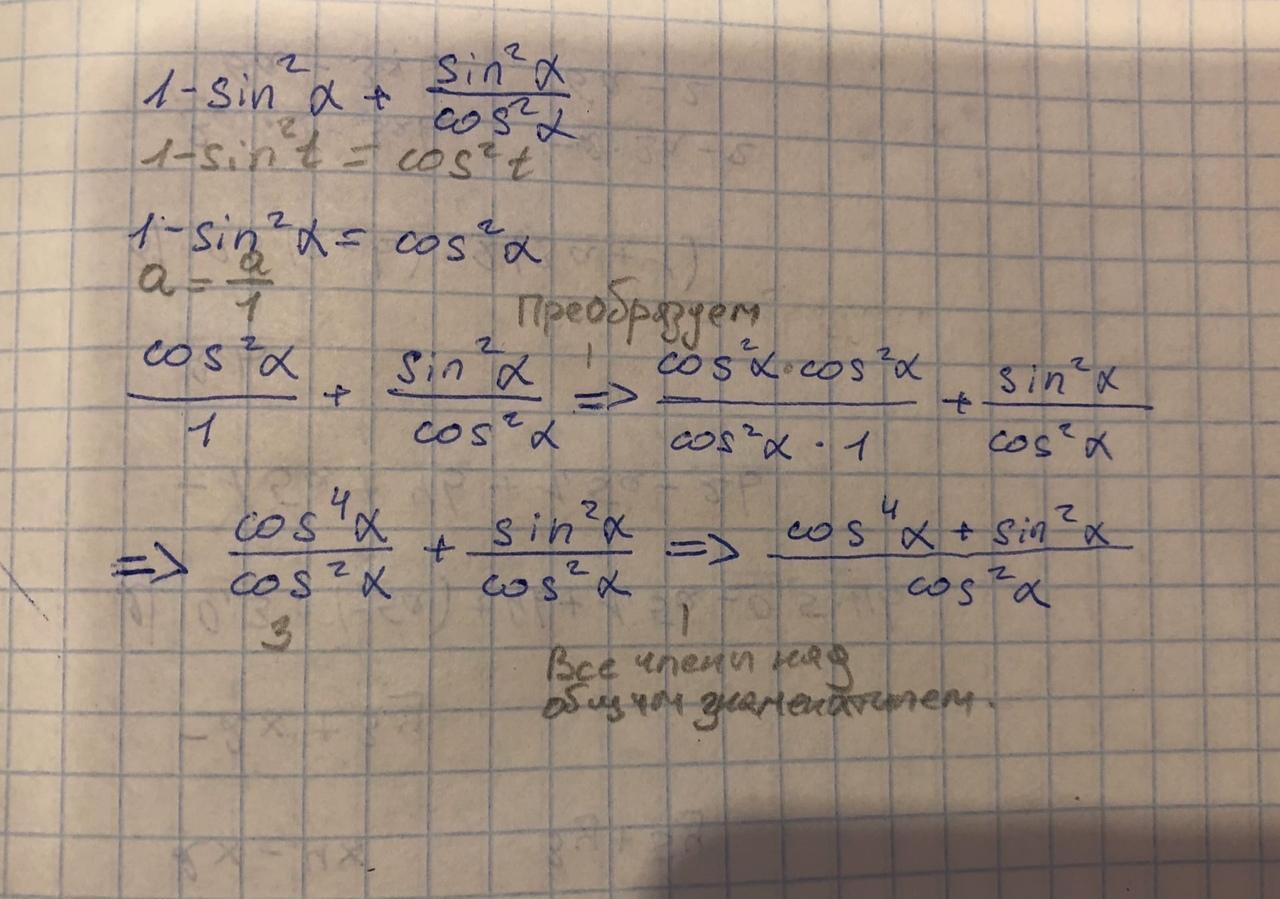 1-sin²α + sin²α/cos²α
1-sin²t = cos²t
1-sin²α = cos²α
a = a/1
Преобразуем
cos²α/1 + sin²α/cos²α => cos²α·cos²α/cos²α·1 + sin²α/cos²α
=> cos⁴α/cos²α + sin²α/cos²α => cos⁴α + sin²α/cos²α
3
Все члены над
общим знаменателем.